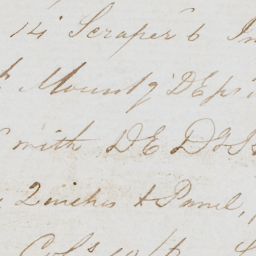 14 Scraper 6 In
Mount g DEps
with DE Do S
2 inches & Panel,
Cols